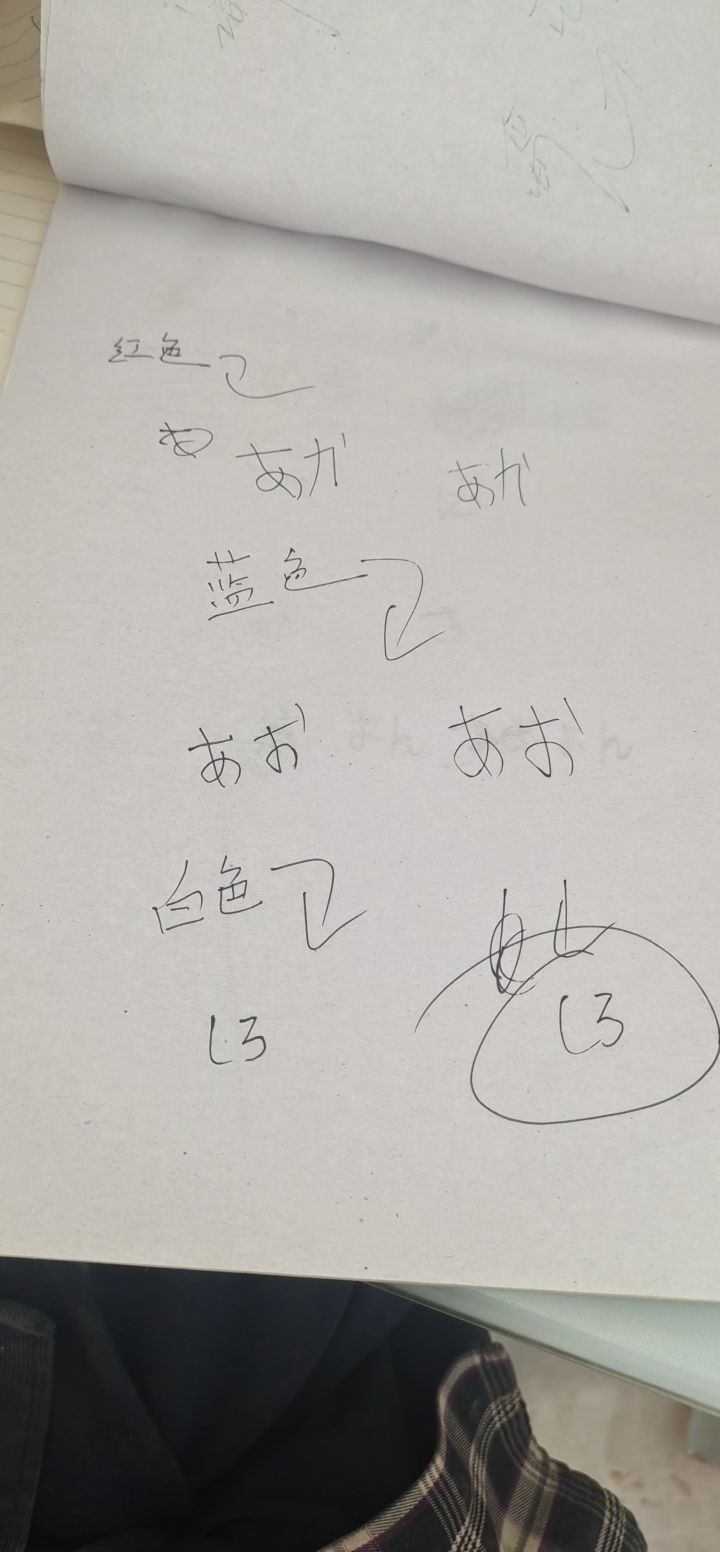 红色
あ あか あか
蓝色
あお あお
白色
しろ しろ